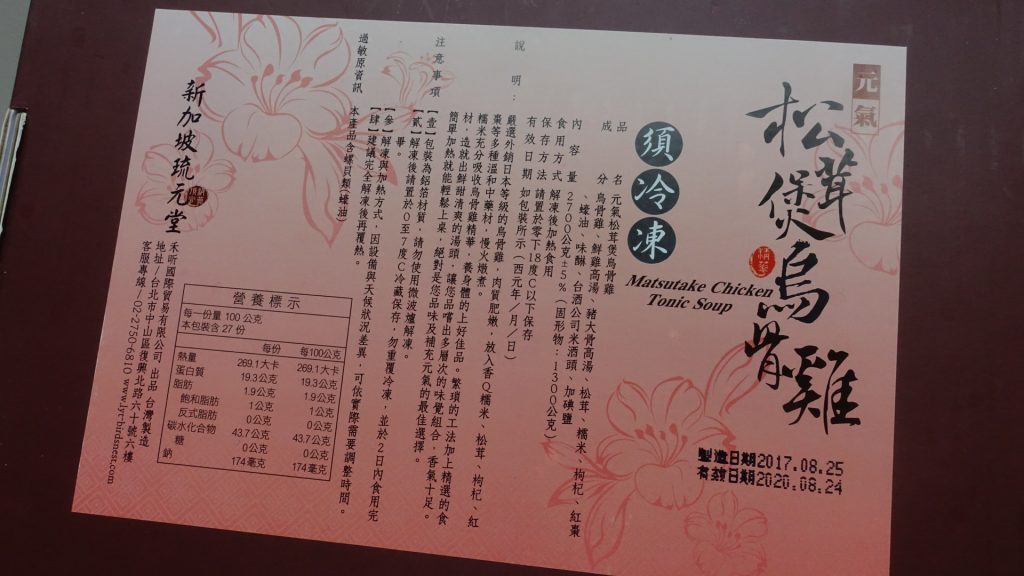 元氣
松茸煲烏骨雞
精華
Matsutake Chicken
Tonic Soup
須冷凍
製造日期2017.08.25
有效日期2020.08.24
品名 元氣松茸煲烏骨雞
成分 烏骨雞、鮮雞高湯、豬大骨高湯、松茸、糯米、枸杞、紅棗
、蠔油、味醂、台酒公司米酒頭、加碘鹽
內容量 2700公克±5%(固形物:1300公克)
食用方式 解凍後加熱食用
保存方法 請置於零下18度C以下保存
有效日期 如包裝所示(西元年/月/日)
說明:
嚴選外銷日本等級的烏骨雞,肉質肥嫩,放入香Q糯米、松茸、枸杞、紅
棗等多種溫和中藥材,慢火燉煮。
糯米充分吸收烏骨雞精華,養身體的上好佳品。繁瑣的工法加上精選的食
材,造就出鮮甜清爽的湯頭,讓您品嚐出多層次的味覺組合,香氣十足。
簡單加熱就能輕鬆上桌,絕對是您品味及補充元氣的最佳選擇。
注意事項
【壹】包裝為鋁箔材質,請勿使用微波爐解凍。
【貳】解凍後請置於0至7度C冷藏保存,勿重覆冷凍,並於2日內食用完
畢。
【參】解凍與加熱方式,因設備與天候狀況差異,可依實際需要調整時間。
【肆】建議完全解凍後再覆熱。
過敏原資訊 本產品含螺貝類(蠔油)
營養標示
每一份量 100 公克
本包裝含 27 份
每份 每100公克
熱量 269.1大卡 269.1大卡
蛋白質 19.3公克 19.3公克
脂肪 1.9公克 1.9公克
飽和脂肪 1公克 1公克
反式脂肪 0公克 0公克
碳水化合物 43.7公克 43.7公克
糖 0公克 0公克
鈉 174毫克 174毫克
新加坡琉元堂
禾昕國際貿易有限公司 出品 台灣製造
地址/台北市中山區復興北路六十號六樓
客服專線:02-2750-6810 www.lyt-birdsnest.com